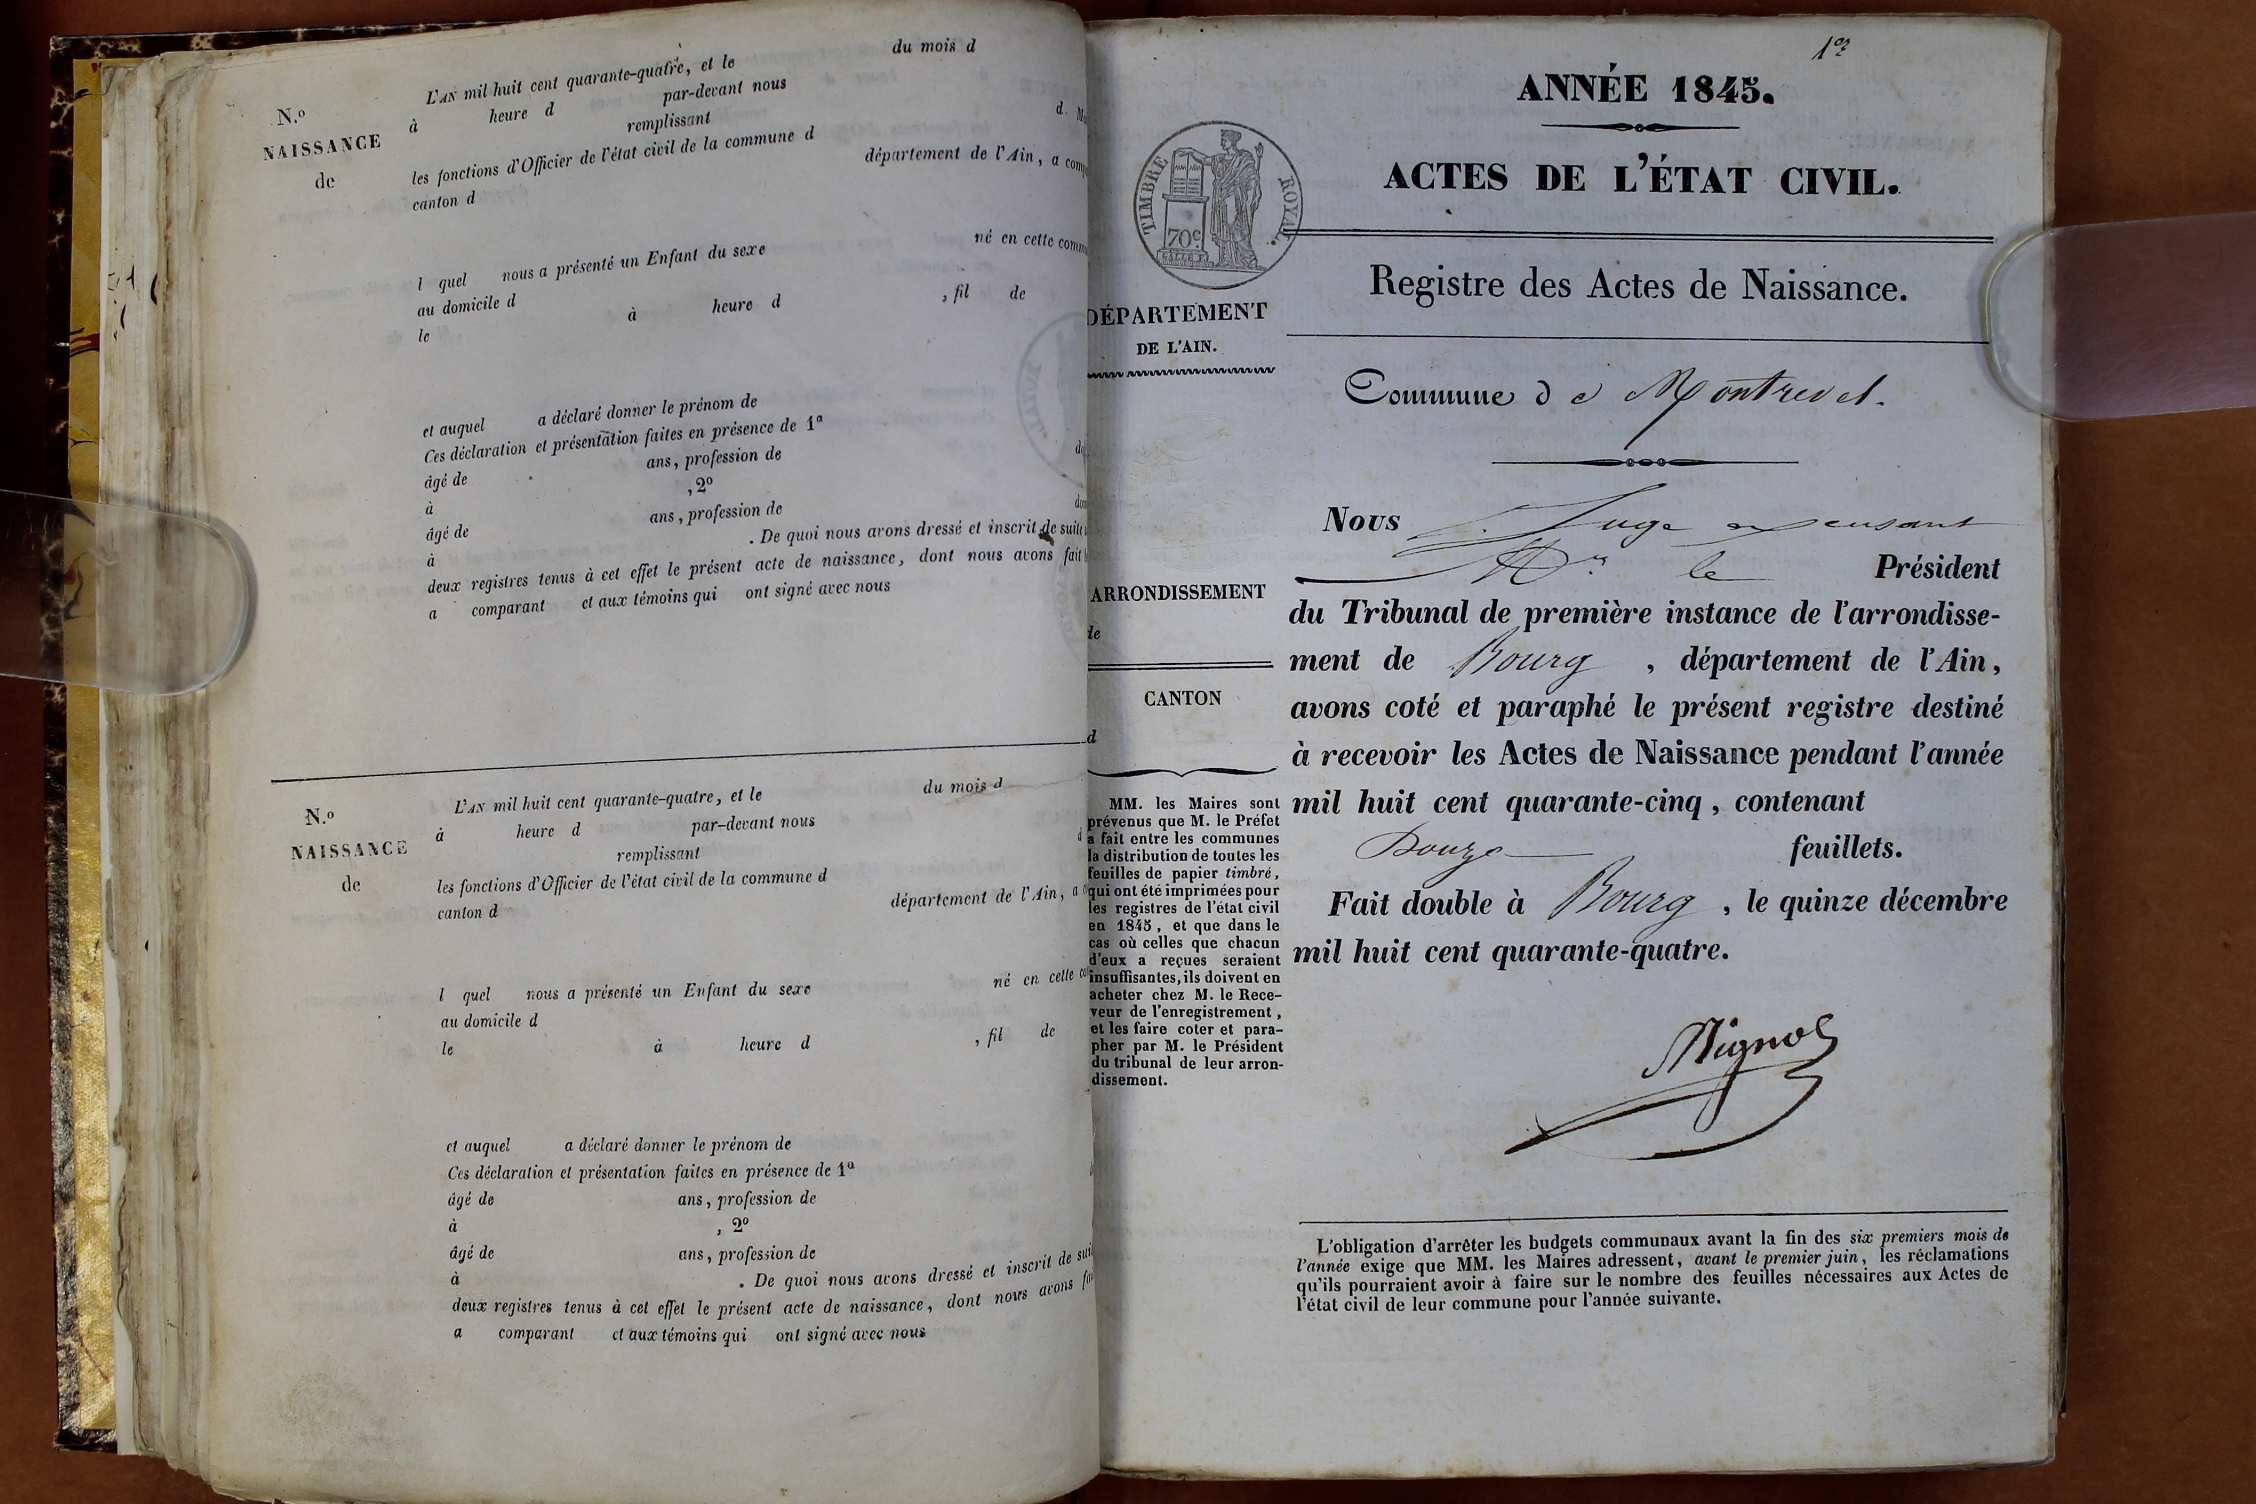 N.º
NAISSANCE
de
L'AN mil huit cent quarante-quatre, et le du mois d
à heure d par-devant nous
remplissant d. M
les fonctions d'Officier de l'état civil de la commune d
canton d département de l'Ain, a comp
l quel nous a présenté un Enfant du sexe né en cette comm
au domicile d
le à heure d , fil de
et auquel a déclaré donner le prénom de
Ces déclaration et présentation faites en présence de 1º
âgé de ans, profession de
à , 2º
âgé de ans, profession de
à . De quoi nous avons dressé et inscrit de suite
deux registres tenus à cet effet le présent acte de naissance, dont nous avons fait
a comparant et aux témoins qui ont signé avec nous
N.º
NAISSANCE
de
L'AN mil huit cent quarante-quatre, et le du mois d
à heure d par-devant nous
remplissant
les fonctions d'Officier de l'état civil de la commune d
canton d département de l'Ain, a
l quel nous a présenté un Enfant du sexe né en cette
au domicile d
le à heure d , fil de
et auquel a déclaré donner le prénom de
Ces déclaration et présentation faites en présence de 1º
âgé de ans, profession de
à , 2º
âgé de ans, profession de
à . De quoi nous avons dressé et inscrit de
deux registres tenus à cet effet le présent acte de naissance, dont nous avons
a comparant et aux témoins qui ont signé avec nous
1er
ANNÉE 1845.
ACTES DE L'ÉTAT CIVIL.
TIMBRE ROYAL.
70c
Registre des Actes de Naissance.
DÉPARTEMENT
DE L'AIN.
Commune de Montrevel.
ARRONDISSEMENT
de
CANTON
d
MM. les Maires sont
prévenus que M. le Préfet
a fait entre les communes
la distribution de toutes les
feuilles de papier timbré,
qui ont été imprimées pour
les registres de l'état civil
en 1845, et que dans le
cas où celles que chacun
d'eux a reçues seraient
insuffisantes, ils doivent en
acheter chez M. le Rece-
veur de l'enregistrement,
et les faire coter et para-
pher par M. le Président
du tribunal de leur arron-
dissement.
Nous Juge
Mr le Président
du Tribunal de première instance de l'arrondisse-
ment de Bourg, département de l'Ain,
avons coté et paraphé le présent registre destiné
à recevoir les Actes de Naissance pendant l'année
mil huit cent quarante-cinq, contenant
Douze feuillets.
Fait double à Bourg, le quinze décembre
mil huit cent quarante-quatre.
L'obligation d'arrêter les budgets communaux avant la fin des six premiers mois de
l'année exige que MM. les Maires adressent, avant le premier juin, les réclamations
qu'ils pourraient avoir à faire sur le nombre des feuilles nécessaires aux Actes de
l'état civil de leur commune pour l'année suivante.